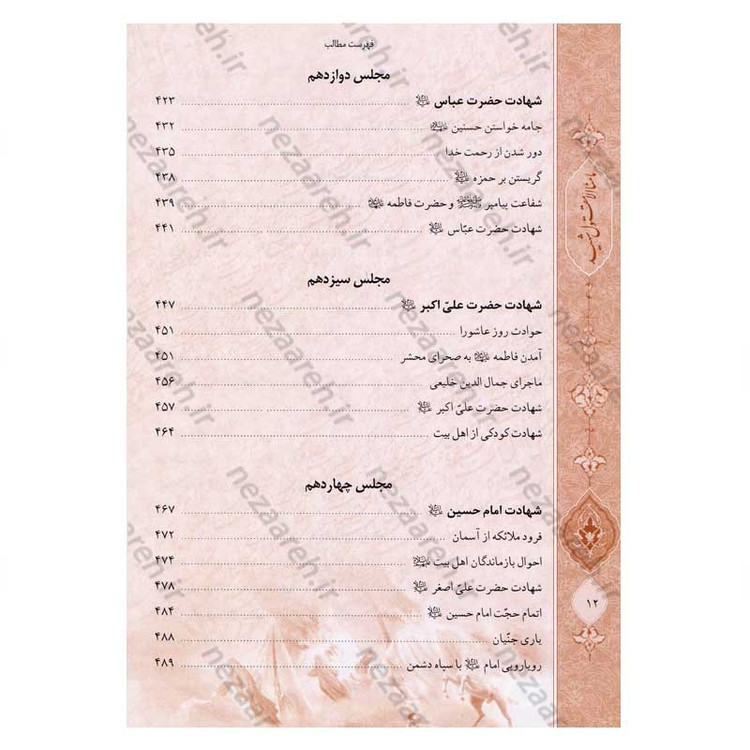 فهرست مطالب
مجلس دوازدهم
شهادت حضرت عباس ﷷ ۴۲۳
جامه خواستن حسنین ۴۳۲
دور شدن از رحمت خدا ۴۳۵
گریستن بر حمزه ۴۳۸
شفاعت پیامبر و حضرت فاطمه ۴۳۹
شهادت حضرت عبّاس ۴۴۱
مجلس سیزدهم
شهادت حضرت علیّ اکبر ۴۴۷
حوادث روز عاشورا ۴۵۱
آمدن فاطمه به صحرای محشر ۴۵۱
ماجرای جمال الدین خلیعی ۴۵۶
شهادت حضرت علیّ اکبر ۴۵۷
شهادت کودکی از اهل بیت ۴۶۴
مجلس چهاردهم
شهادت امام حسین ۴۶۷
فرود ملائکه از آسمان ۴۷۲
احوال بازماندگان اهل بیت ۴۷۴
شهادت حضرت علیّ اصغر ۴۷۸
اتمام حجّت امام حسین ۴۸۴
یاری جنّیان ۴۸۸
رویارویی امام با سپاه دشمن ۴۸۹
۱۲
nezaareh.ir